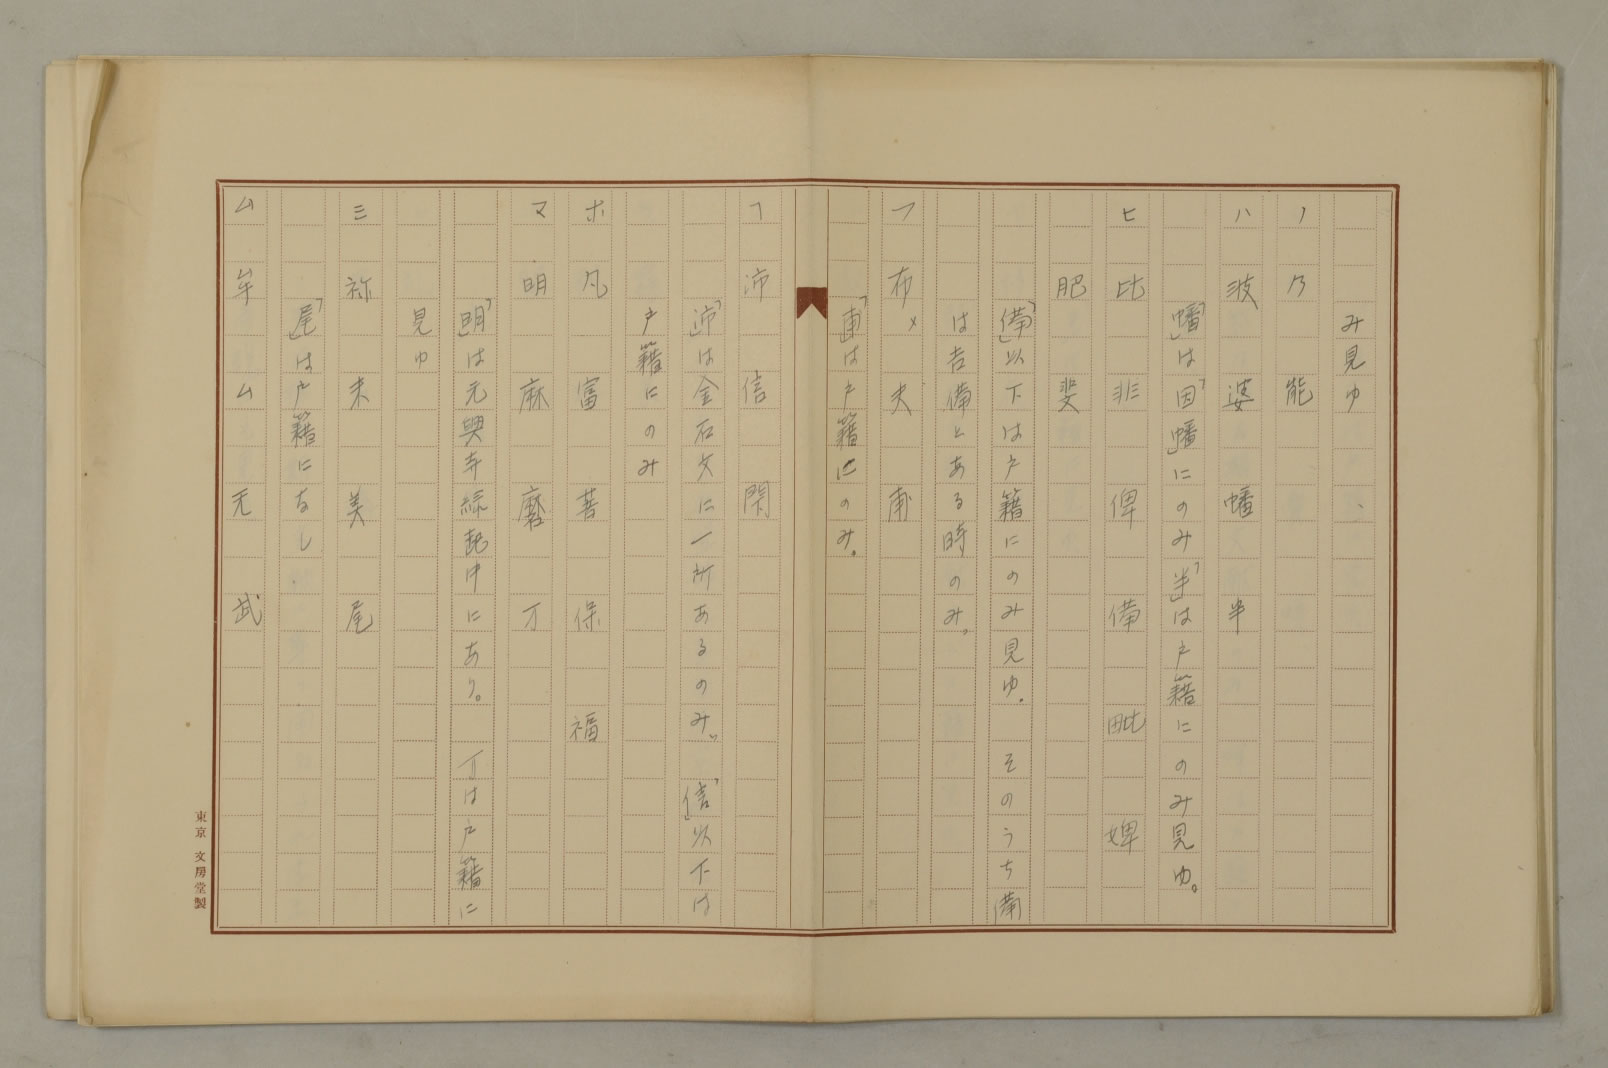 み見ゆ
ノ 乃 能
ハ 波 婆 幡 半
「幡」は「因幡」にのみ「半」は戸籍にのみ見ゆ。
ヒ 比 非 俾 備 毗 婢
肥 斐
「備」以下は戸籍にのみ見ゆ。そのうち備
は吉備とある時のみ。
フ 布 夫 甫
「甫」は戸籍にのみ。
沛 信
「沛」は金石文に一所あるのみ。「信」以下は
戸籍にのみ
ホ 凡 富 菩 保 福
マ 明 麻 磨 万
「明」は元興寺縁起中にあり。 万は戸籍に
見ゆ
ミ 祢 未 美 尾
「尾」は戸籍になし
ム 牟 ム 无 武
東京 文房堂製